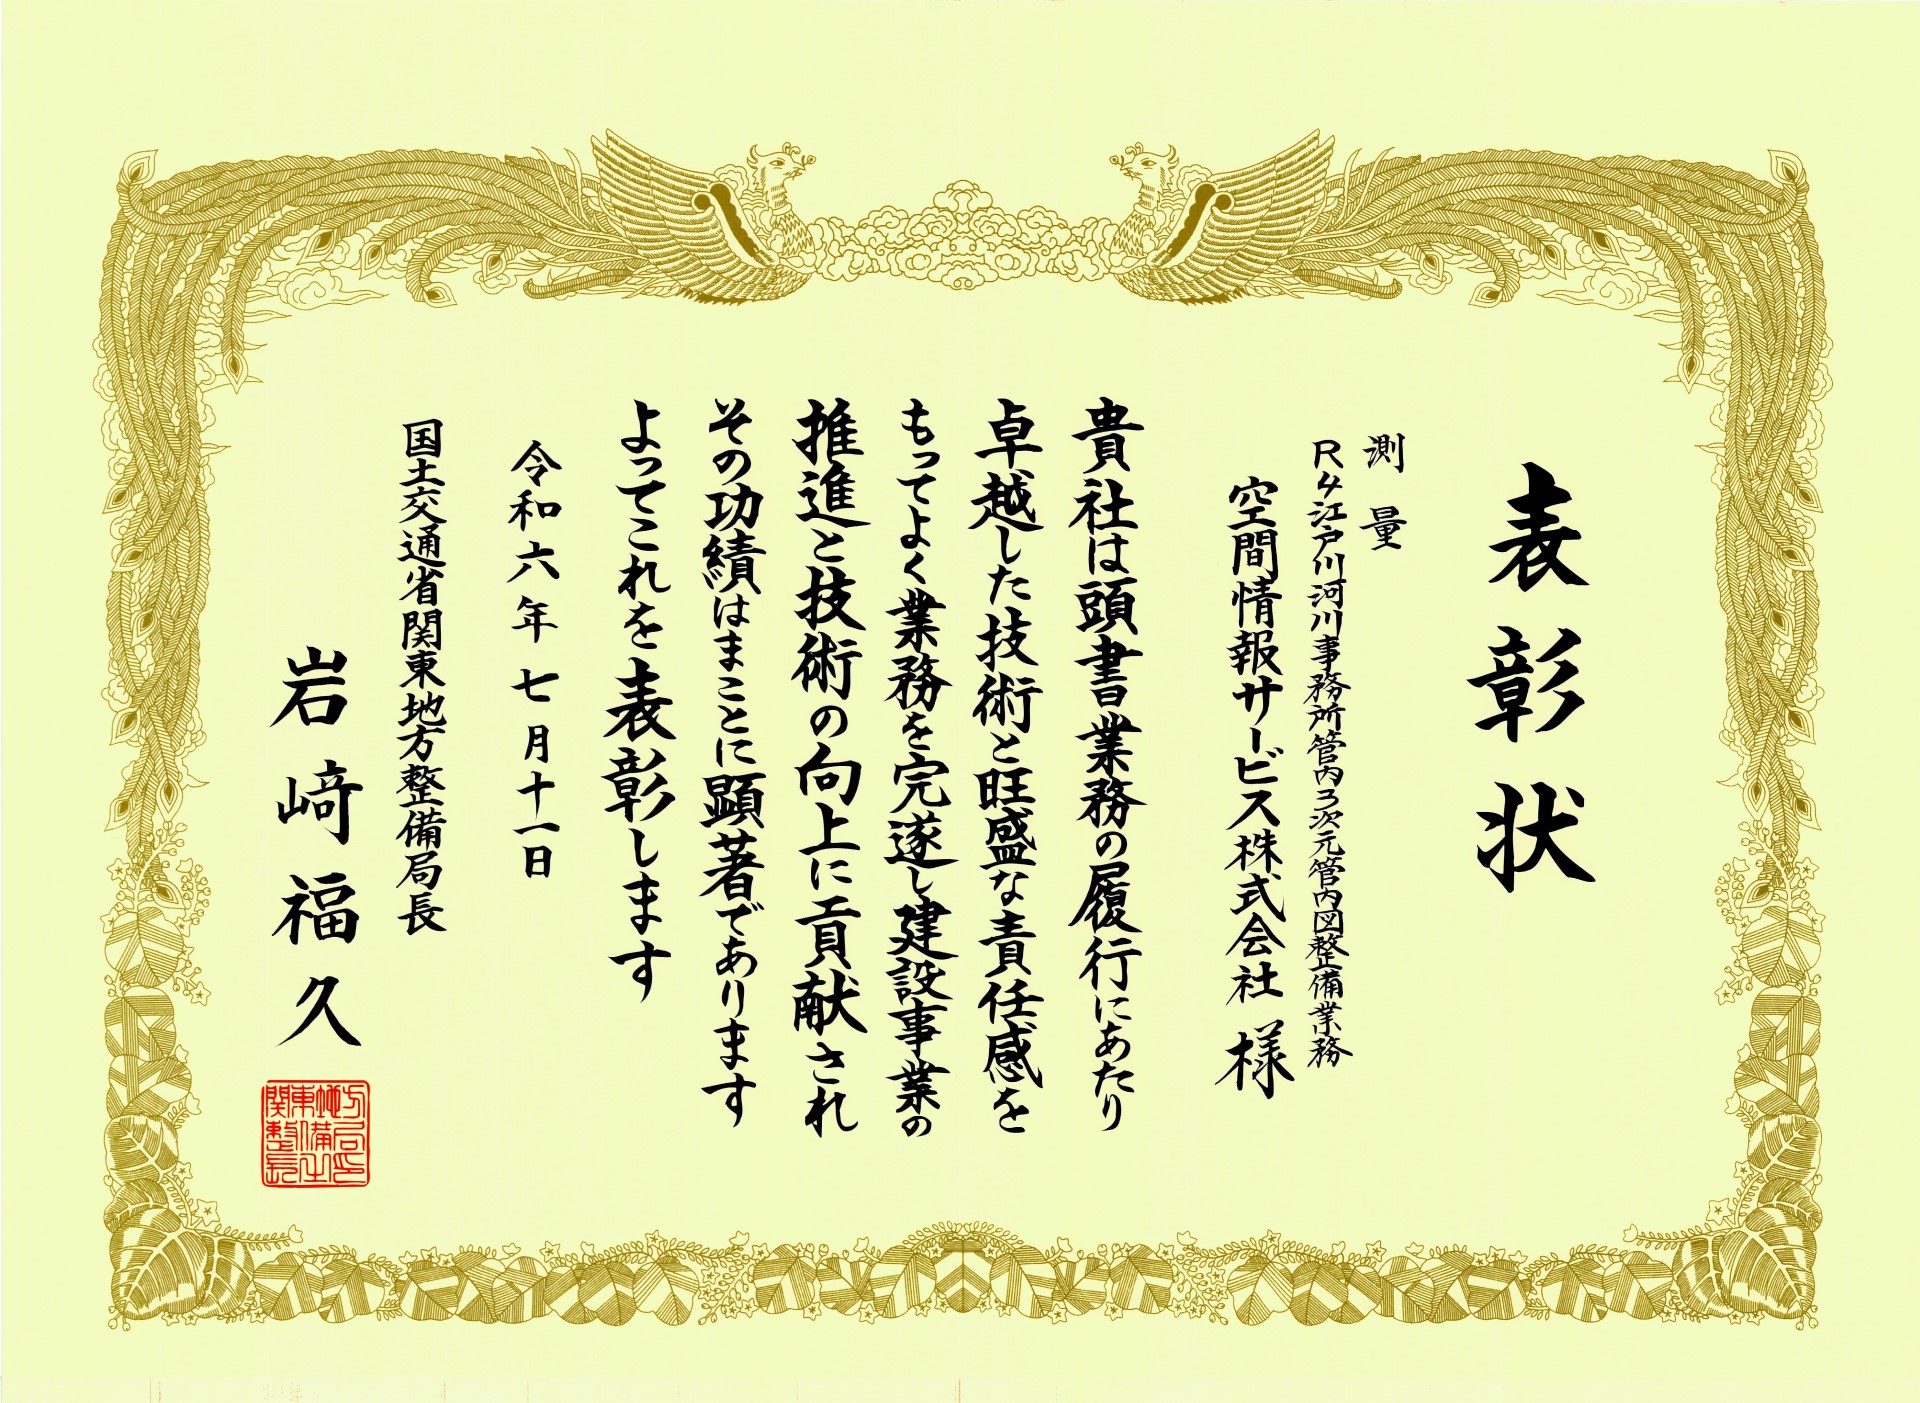 表彰状
測量
R4江戸川河川事務所管内3次元管内図整備業務
空間情報サービス株式会社 様
貴社は頭書業務の履行にあたり
卓越した技術と旺盛な責任感を
もってよく業務を完遂し建設事業の
推進と技術の向上に貢献され
その功績はまことに顕著であります
よってこれを表彰します
令和六年七月十一日
国土交通省関東地方整備局長
岩﨑福久